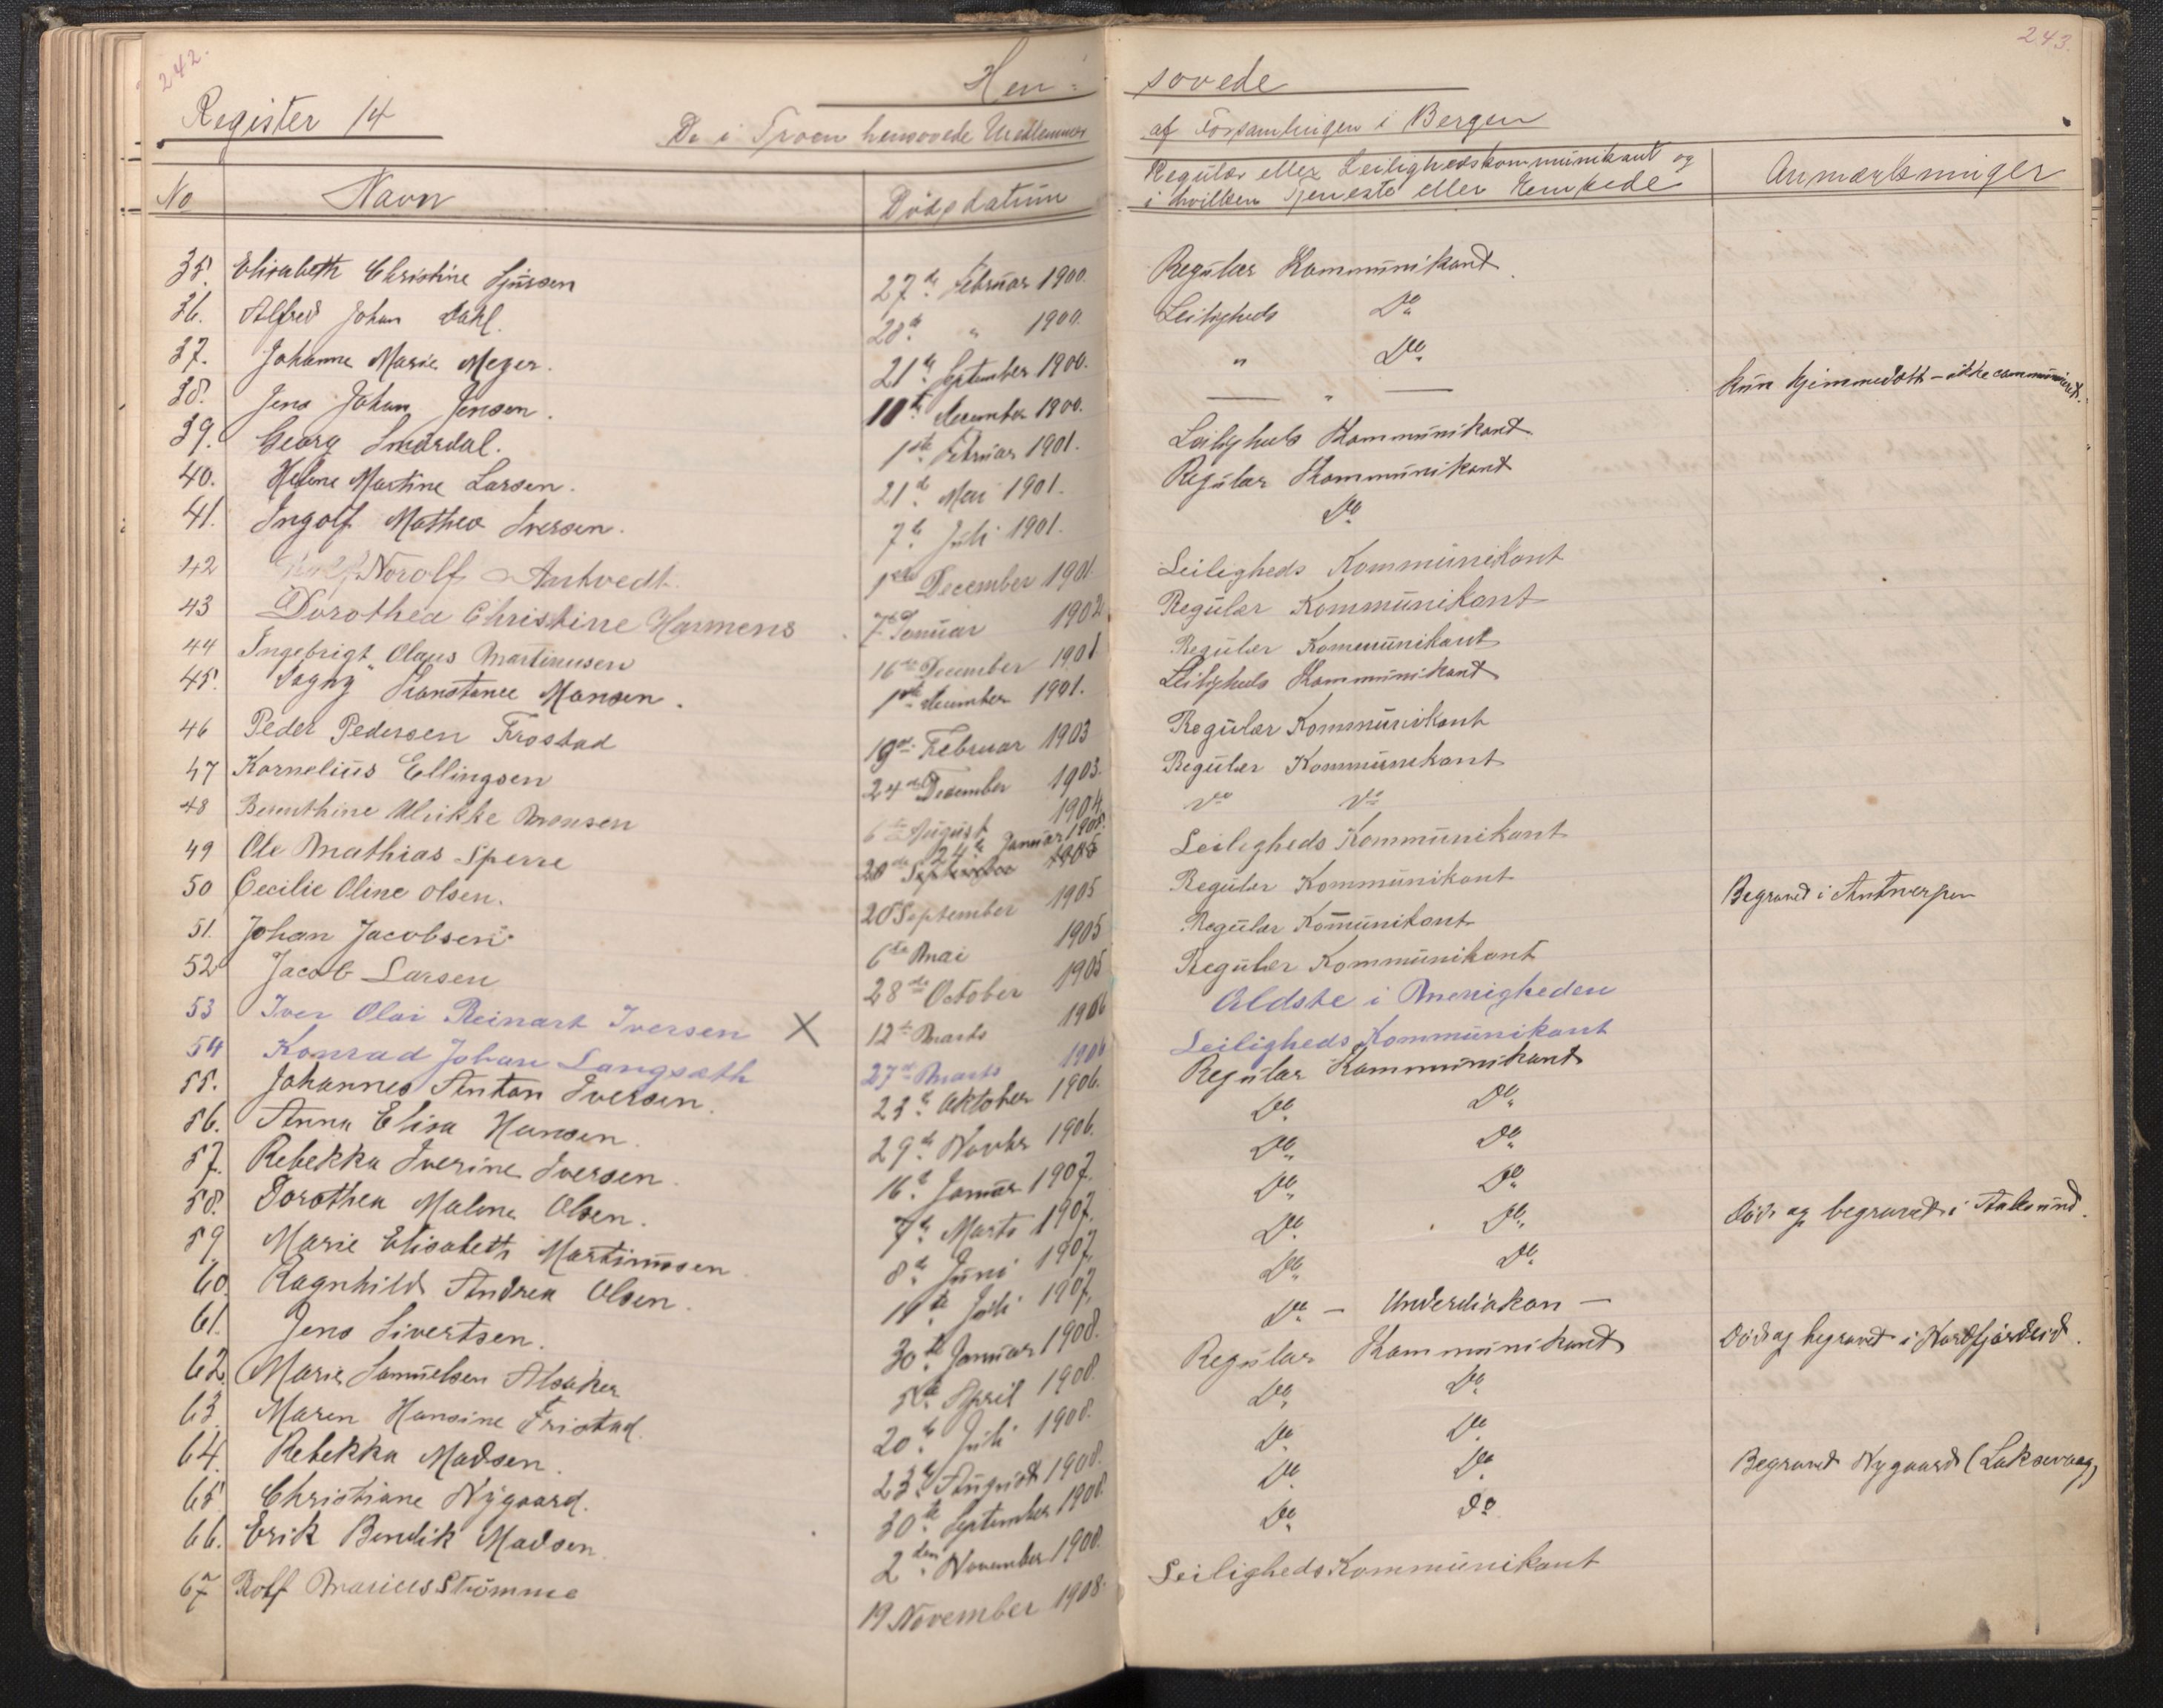 242.
243.
Hen=
sovede
Register 14
De i Troen hensovede Medlemmer
af Forsamlingen i Bergen
No Navn Dödsdatum Regulær eller Leilighedskommunikant og i hvilken Tjeneste eller Embede Anmærkninger
35. Elisabeth Christine Sjursen 27de Februar 1900. Regulær Kommunikant
36. Alfred Johan Dahl. 28de " 1900. Leiligheds Do
37. Johanne Marie Meyer. 21de September 1900. " Do
38. Jens Johan Jensen. 10de December 1900. — " — kun hjemmedöbt - ikke communiceret.
39. Georg Smørdal. 1ste Februar 1901. Leiligheds Kommunikant
40. Helene Martine Larsen. 21de Mai 1901. Regulær Kommunikant
41. Ingolf Matheo Iversen. 7de Juli 1901. Do
42 Norolf Antvedt. 1ste December 1901. Leiligheds Kommunikant
43 Dorothea Christine Harmens 7de Januar 1902 Regulær Kommunikant
44 Ingebrigt Olaus Martinusen 16de December 1901 Regulær Kommunikant
45. Dagny Konstance Monsen. 1ste December 1901. Leiligheds Kommunikant
46 Peder Pedersen Frostad 19de Februar 1903 Regulær Kommunikant
47 Kornelius Ellingsen 24de December 1903. Regulær Kommunikant
48 Berenthine Ulrikke Monsen 6te August 1904. Do Do
49 Ole Mathias Sperre 24de Januar 1905. 20de September 1905 Leiligheds Kommunikant
50 Cecilie Oline Olsen. 20 September 1905 Regulær Kommunikant Begravet i Antwerpen
51. Johan Jacobsen 6te Mai 1905 Regulær Kommunikant
52 Jacob Larsen 28de October 1905 Regulær Kommunikant
53 Iver Olai Reinart Iversen X 12te Marts 1906 Ældste i Menigheden
54 Konrad Johan Langsæth 27de Marts 1906 Leiligheds Kommunikant
55. Johannes Anton Iversen. 23de Oktober 1906. Regulær Kommunikant
56. Anna Elisa Hansen. 29de Novbr 1906. Do Do
57. Rebekka Iverine Iversen. 16de Januar 1907. Do Do
58. Dorothea Malene Olsen. 7de Marts 1907. Do Do
59. Marie Elisabeth Martinussen 8de Juni 1907. Do Do Död og begravet i Aalesund.
60. Ragnhild Andrea Olsen. 11te Juli 1907. Do Do
61. Jens Sivertsen. 30te Januar 1908. Do - Underdiakon -
62. Marie Samuelsen Alsaker 5te April 1908. Regulær Kommunikant Död og begravet i Nordfjordeid.
63. Maren Hansine Fristad. 20de Juli 1908. Do Do
64. Rebekka Madsen. 23de August 1908. Do Do
65 Christiane Nygaard. 30te September 1908. Do Do Begravet Nygaard (Laksevaag)
66. Erik Bendik Madsen. 2den November 1908. Do Do
67 Rolf Marius Strömme 19 November 1908. Leiligheds Kommunikant